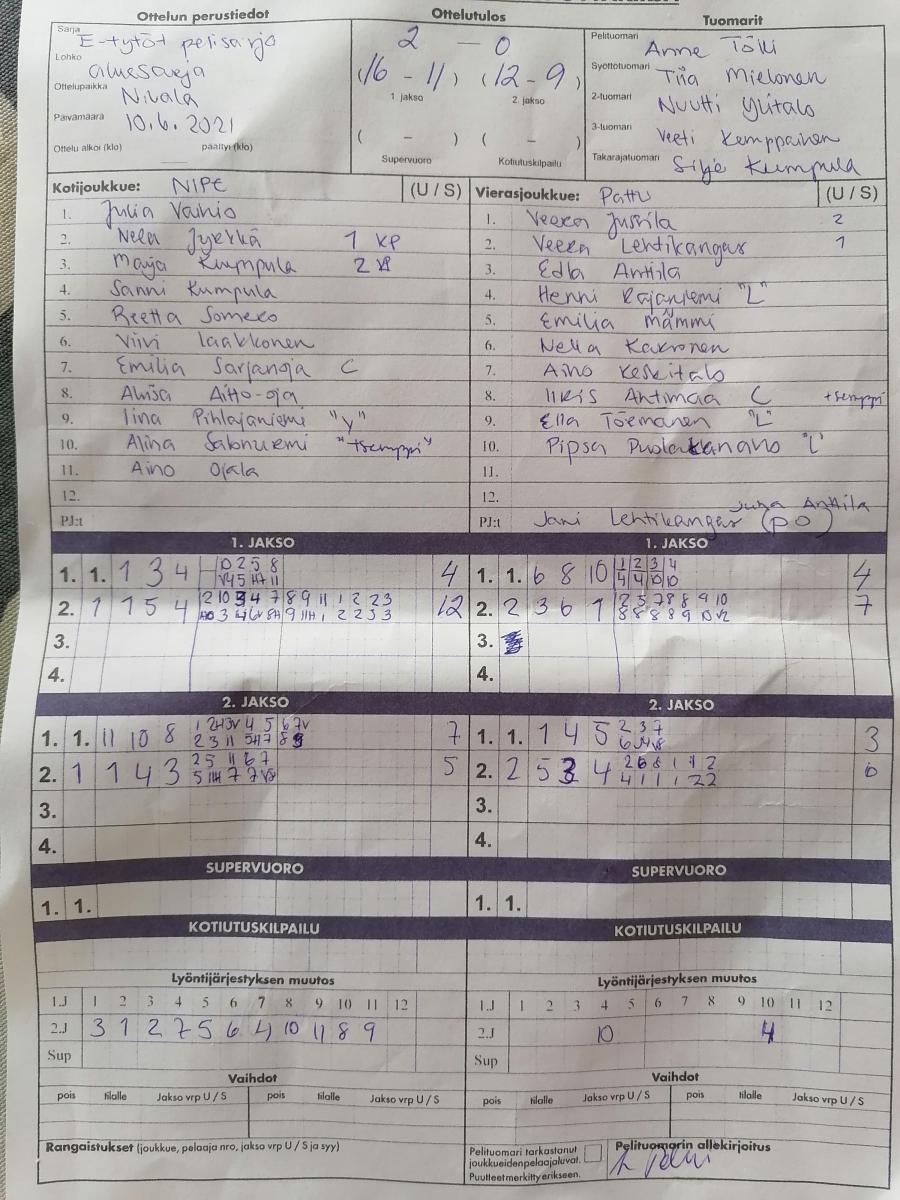 Ottelun perustiedot
Sarja E-tytöt pelisarja
Lohko aluesarja
Ottelupaikka Nivala
Päivämäärä 10.6.2021
Ottelu alkoi (klo) päättyi (klo)
Ottelutulos
2 – 0
(16 – 11) (12 – 9)
1. jakso 2. jakso
( – ) ( – )
Supervuoro Kotiutuskilpailu
Tuomarit
Pelituomari Anne Tölli
Syöttötuomari Tiia Mielonen
2-tuomari Nuutti Ylitalo
3-tuomari Veeti Kemppainen
Takarajatuomari Silje Kumpula
Kotijoukkue: NIPE (U / S)
1. Julia Vainio
2. Neea Jyrkkä 1 KP
3. Maija Kumpula 2
4. Sanni Kumpula
5. Reetta Somero
6. Viivi Laakkonen
7. Emilia Sarjanoja C
8. Aliisa Aitto-oja
9. Iina Pihlajaniemi "Y"
10. Alina Salonurmi "tsemppi"
11. Aino Ojala
12.
PJ:t
Vierasjoukkue: Pattu (U / S)
1. Veera Jussila 2
2. Veera Lehtikangas 1
3. Edla Anttila
4. Henni Rajaniemi "L"
5. Emilia Mämmi
6. Nella Kakronen
7. Aino Keskitalo
8. Iiris Antimaa C tsemppi
9. Ella Törmänen "L"
10. Pipsa Puolakanaho "L"
11.
12.
PJ:t Jani Lehtikangas Juha Anttila (PO)
1. JAKSO
1. 1. 1 3 4 4
2. 1 1 5 4 12
3.
4.
1. JAKSO
1. 1. 6 8 10 4
2. 2 3 6 1 7
3.
4.
2. JAKSO
1. 1. 11 10 8 7
2. 1 1 4 3 5
3.
4.
2. JAKSO
1. 1. 1 4 5 3
2. 2 5 3 4 6
3.
4.
SUPERVUORO
1. 1.
SUPERVUORO
1. 1.
KOTIUTUSKILPAILU
KOTIUTUSKILPAILU
Lyöntijärjestyksen muutos
1.J 1 2 3 4 5 6 7 8 9 10 11 12
2.J 3 1 2 7 5 6 4 10 11 8 9
Sup
Lyöntijärjestyksen muutos
1.J 1 2 3 4 5 6 7 8 9 10 11 12
2.J 10 4
Sup
Vaihdot
pois tilalle Jakso vrp U / S pois tilalle Jakso vrp U / S
Vaihdot
pois tilalle Jakso vrp U / S pois tilalle Jakso vrp U / S
Rangaistukset (joukkue, pelaaja nro, jakso vrp U / S ja syy)
Pelituomari tarkastanut
joukkueiden pelaajaluvat.
Puutteet merkitty erikseen.
Pelituomarin allekirjoitus